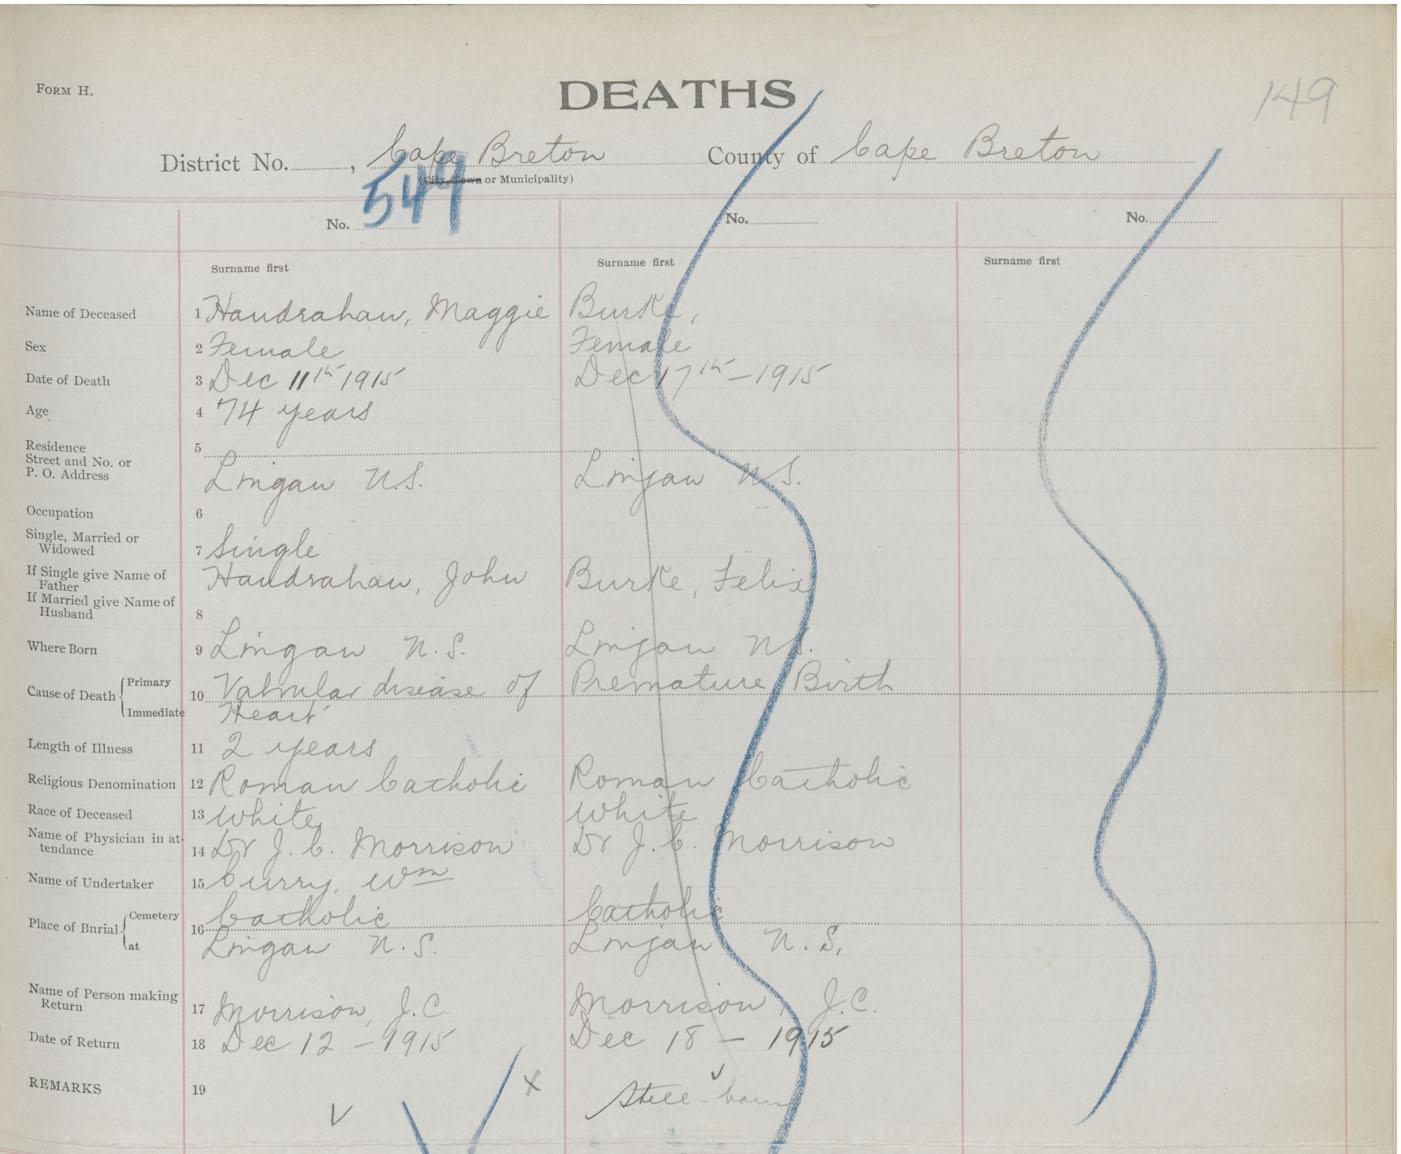 FORM H.
DEATHS
149
District No. , Cape Breton County of Cape Breton
(City, Town or Municipality)
No. 549 No. No.
Surname first Surname first Surname first
Name of Deceased 1 Handrahan, Maggie Burke,
Sex 2 Female Female
Date of Death 3 Dec 11th 1915 Dec 17th - 1915
Age 4 74 years
Residence 5
Street and No. or
P. O. Address Lingan N.S. Lingan N.S.
Occupation 6
Single, Married or
Widowed 7 Single
If Single give Name of
Father Handrahan, John Burke, Felix
If Married give Name of
Husband 8
Where Born 9 Lingan N.S. Lingan N.S.
Cause of Death { Primary 10 Valvular disease of Premature Birth
Immediate Heart
Length of Illness 11 2 years
Religious Denomination 12 Roman Catholic Roman Catholic
Race of Deceased 13 white white
Name of Physician in at-
tendance 14 Dr J. C. Morrison Dr J. C. Morrison
Name of Undertaker 15 Curry, Wm
Place of Burial { Cemetery 16 Catholic Catholic
at Lingan N.S. Lingan N.S.
Name of Person making
Return 17 Morrison, J.C. Morrison, J.C.
Date of Return 18 Dec 12 - 1915 Dec 18 - 1915
REMARKS 19 Still-born